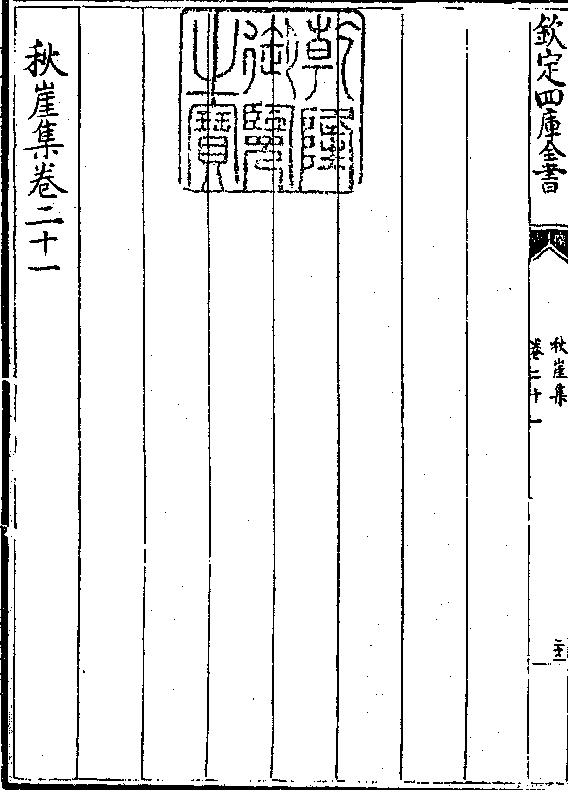 欽定四庫全書
秋崖集
卷二十一
乾隆
御覽
之寶
秋崖集卷二十一